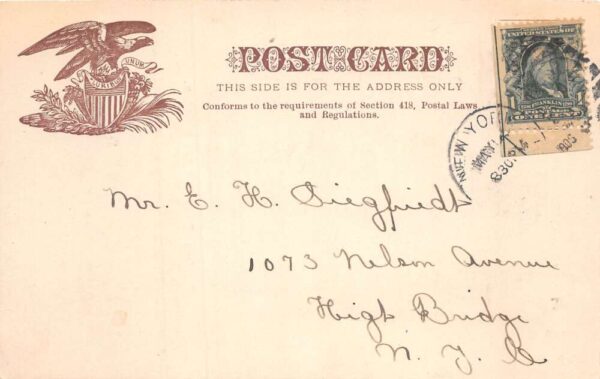 POST CARD
THIS SIDE IS FOR THE ADDRESS ONLY
Conforms to the requirements of Section 418, Postal Laws
and Regulations.
UNITED STATES OF
FRANKLIN
ONE CENT
NEW YORK
830 PM
1905
Mr. E. H. Siegfriedt
1073 Nelson Avenue
High Bridge
N. Y. C.